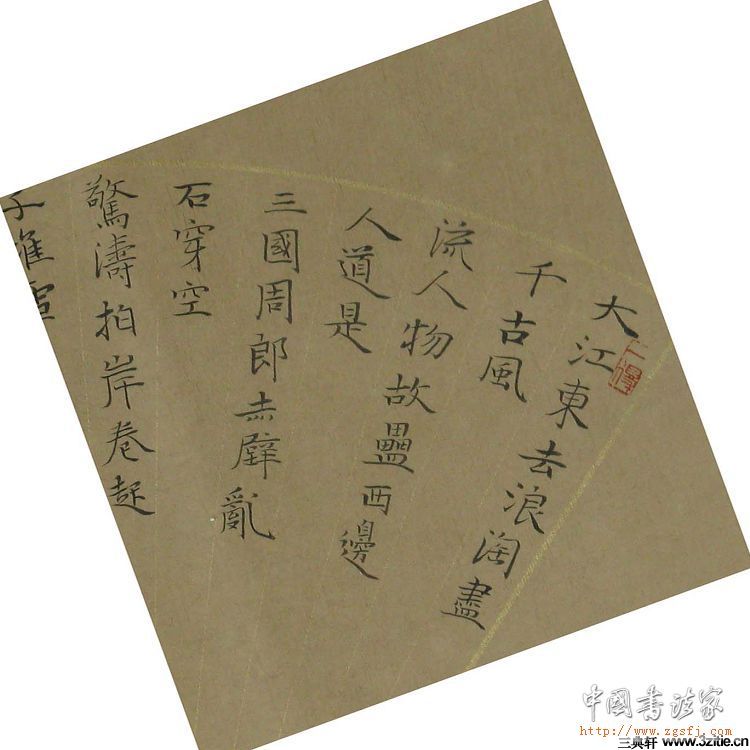 大江東去浪淘盡
千古風
流人物故壘西邊
人道是
三國周郎赤壁亂
石穿空
驚濤拍岸卷起
千堆雪
中國書法家
http://www.zgsfj.com
三典轩 www.3zitie.cn